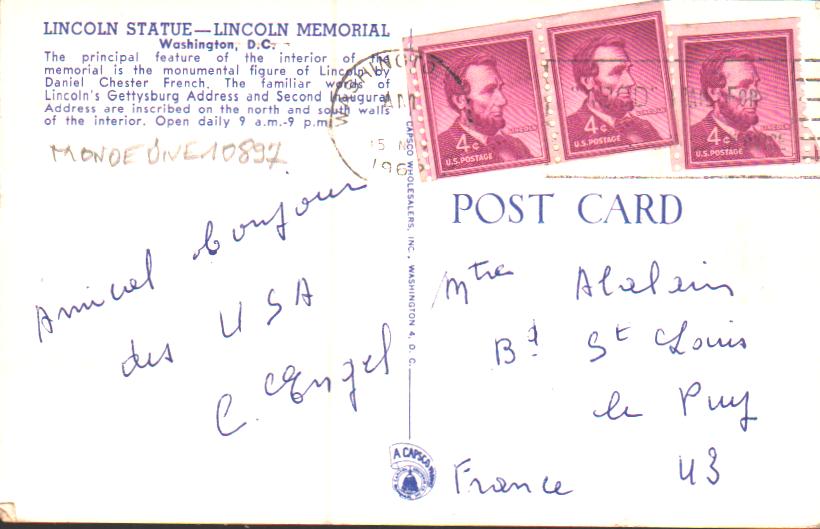 LINCOLN STATUE—LINCOLN MEMORIAL
Washington, D.C.
The principal feature of the interior of the
memorial is the monumental figure of Lincoln by
Daniel Chester French. The familiar words of
Lincoln's Gettysburg Address and Second Inaugural
Address are inscribed on the north and south walls
of the interior. Open daily 9 a.m.-9 p.m.
MONDEUNE10897
Amical bonjour
des USA
C. Engel
CAPSCO WHOLESALERS, INC., WASHINGTON 4, D.C.
A CAPSCO
WASHINGTON
AM
196
4¢
LINCOLN
U.S. POSTAGE
4¢
LINCOLN
U.S. POSTAGE
4¢
LINCOLN
U.S. POSTAGE
POST CARD
Bd St Louis
le Puy
43
France